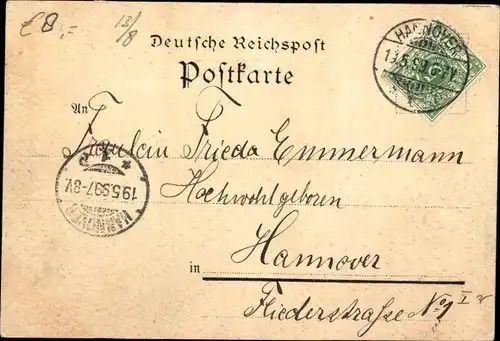 € 8,-
13/8
Deutsche Reichspost
Postkarte
HANNOVER
An
Fräulein Frieda Emmermann
Hochwohlgeboren
19.5.99.7-8V.
HANNOVER
Hannover
in
Fliederstraße No 1 I